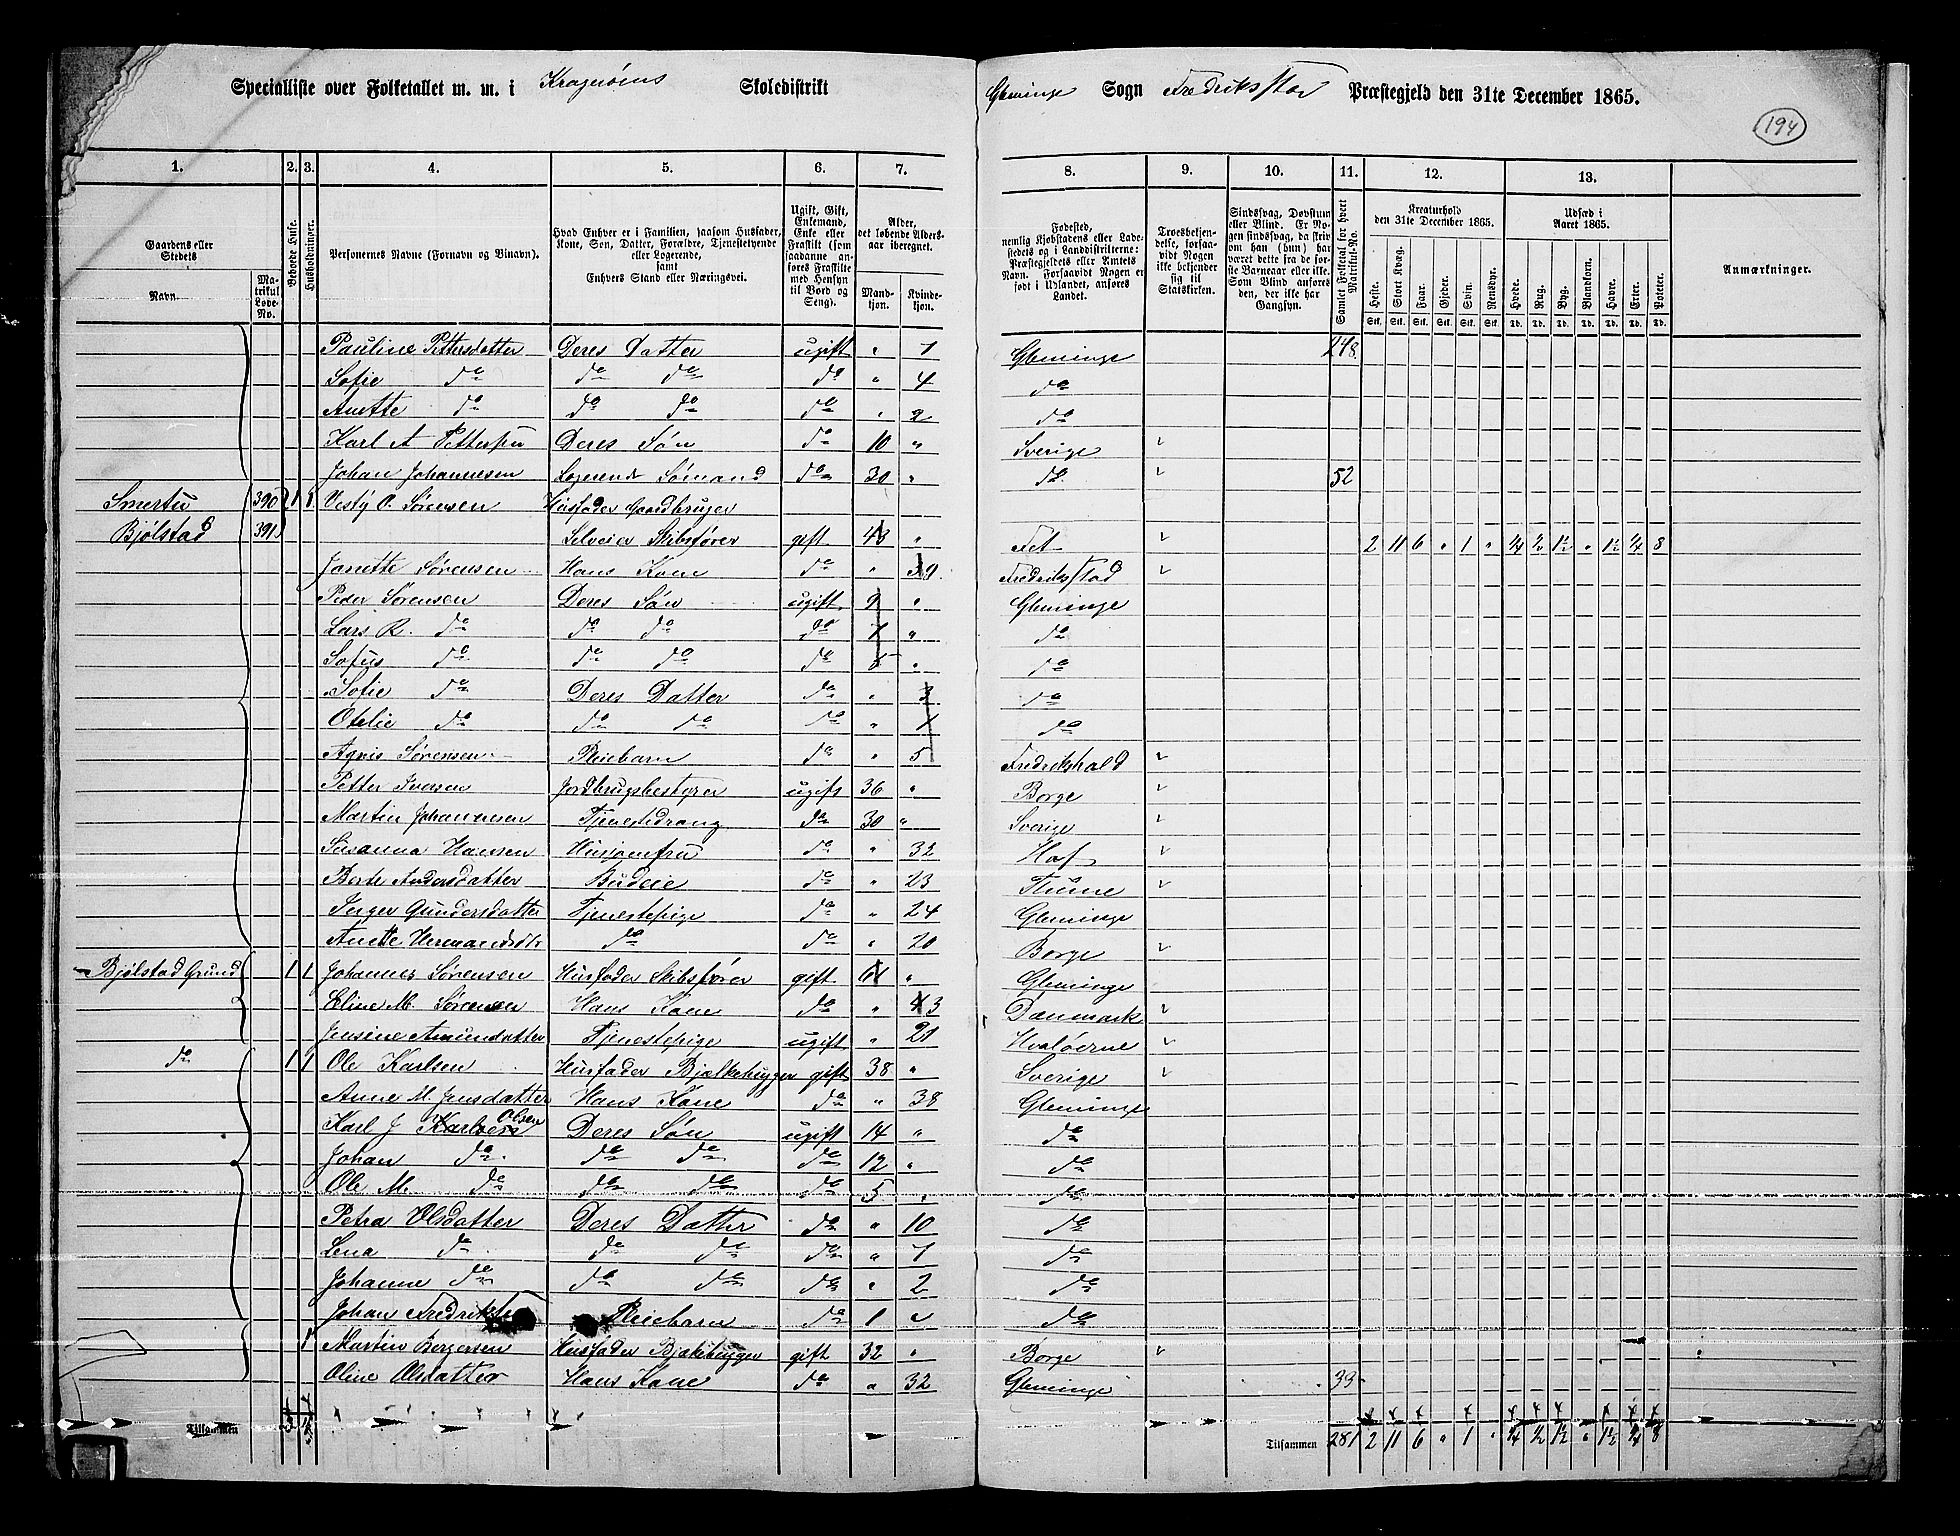 Specialliste over Folketallet m. m. i Kragerøens Skoledistrikt Glemminge Sogn Fredriksstad Præstegjeld den 31te December 1865.
194
1. 2. 3. 4. 5. 6. 7. 8. 9. 10. 11. 12. 13.
Gaardens eller Stedets Navn. Matrikul Løbe-No. Beboede Huse. Husholdninger. Personernes Navne (Fornavn og Binavn). Hvad Enhver er i Familien, saasom Husfader, Kone, Søn, Datter, Forældre, Tjenestetyende eller Logerende, samt Enhvers Stand eller Næringsvei. Ugift, Gift, Enkemand, Enke eller Fraskilt (som saadanne anføres Fraskilte med Hensyn til Bord og Seng). Alder, det løbende Alders-aar iberegnet. Mandkjøn. Kvindekjøn.
Fødested, nemlig Kjøbstadens eller Ladestedets og i Landdistrikterne: Præstegjeldets eller Amtets Navn. Forsaavidt Nogen er født i Udlandet, anføres Landet. Troesbekjendelse, forsaavidt Nogen ikke bekjender sig til Statskirken. Sindssvag, Døvstum eller Blind. Er Nogen sindssvag, da skrives om han (hun) har været dette fra de første Barneaar eller ikke. Som Blind anføres den, der ikke har Gangsyn. Samlet Folketal for hvert Matrikul-No. Kreaturhold den 31te December 1865. Heste. Stort Kvæg. Faar. Gjeder. Svin. Rensdyr. Udsæd i Aaret 1865. Hvede. Rug. Byg. Blandkorn. Havre. Erter. Poteter. Anmærkninger.
Pauline Pettersdatter Deres Datter ugift " 7 Glemminge 248
Sofie do do do do " 4 do
Anette do do do do " 2 do
Karl A Pettersen Deres Søn do 10 " Sverige
Johan Johannesen Logerende Sømand do 30 " do 52
Smertu 390 1 1 Vesty O. Sørensen Husfader Gaardbruger
Bjølstad 391 Selveier Skibsfører gift 43 " Fet 2 11 6 " 1 " ¼ ½ 1½ " 1½ ¼ 8
Janette Sørensen Hans Kone do " 39 Fredriksstad
Peder Sørensen Deres Søn ugift 9 " Glemminge
Lars R. do do do do 7 " do
Sofus do do do do 5 " do
Sofie do Deres Datter do " 3 do
Otelie do do do do " 1 do
Agnis Sørensen Pleiebarn do " 5 Fredrikshald
Petter Iversen Jordbrugsbestyrer ugift 36 " Borge
Martin Johannesen Tjenestedreng do 30 " Sverige
Susanna Hansen Husjomfru do " 32 Haf
Berte Andersdatter Budeie do " 23 Thune
Inger Gundersdatter Tjenestepige do " 24 Glemminge
Anette Hermandsdtr do do " 20 Borge
Bjølstad Grund 1 1 Johannes Sørensen Husfader Skibsfører gift 61 " Glemminge
Eline M. Sørensen Hans Kone do " 43 Danmark
Jensine Amundatter Tjenestepige ugift " 21 Hvaløerne
do 1 1 Ole Karlsen Husfader Bjælkehugger gift 38 " Sverige
Anne M. Jensdatter Hans Kone do " 38 Glemminge
Karl J Karlsen Olsen Deres Søn ugift 14 " do
Johan do do do do 12 " do
Ole M. do do do do 5 " do
Petra Olsdatter Deres Datter do " 10 do
Lena do do do do " 7 do
Johanne do do do do " 2 do
Johan Fredrik Pleiebarn do 1 " do
1 Martin Bergersen Husfader Bjælkehugger gift 32 " Borge
Oline Olsdatter Hans Kone do " 32 Glemminge 33
Tilsammen 3 4 Tilsammen 281 2 11 6 " 1 " ¼ ½ 1½ " 1½ ¼ 8